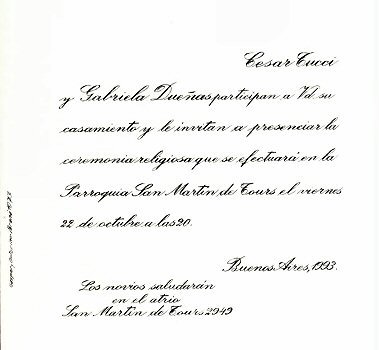 Cesar Tucci
y Gabriela Dueñas participan a Vd. su
casamiento y le invitan a presenciar la
ceremonia religiosa que se efectuará en la
Parroquia San Martín de Tours el viernes
22 de octubre a las 20.
Buenos Aires, 1993.
Los novios saludarán
en el atrio
San Martín de Tours 2949